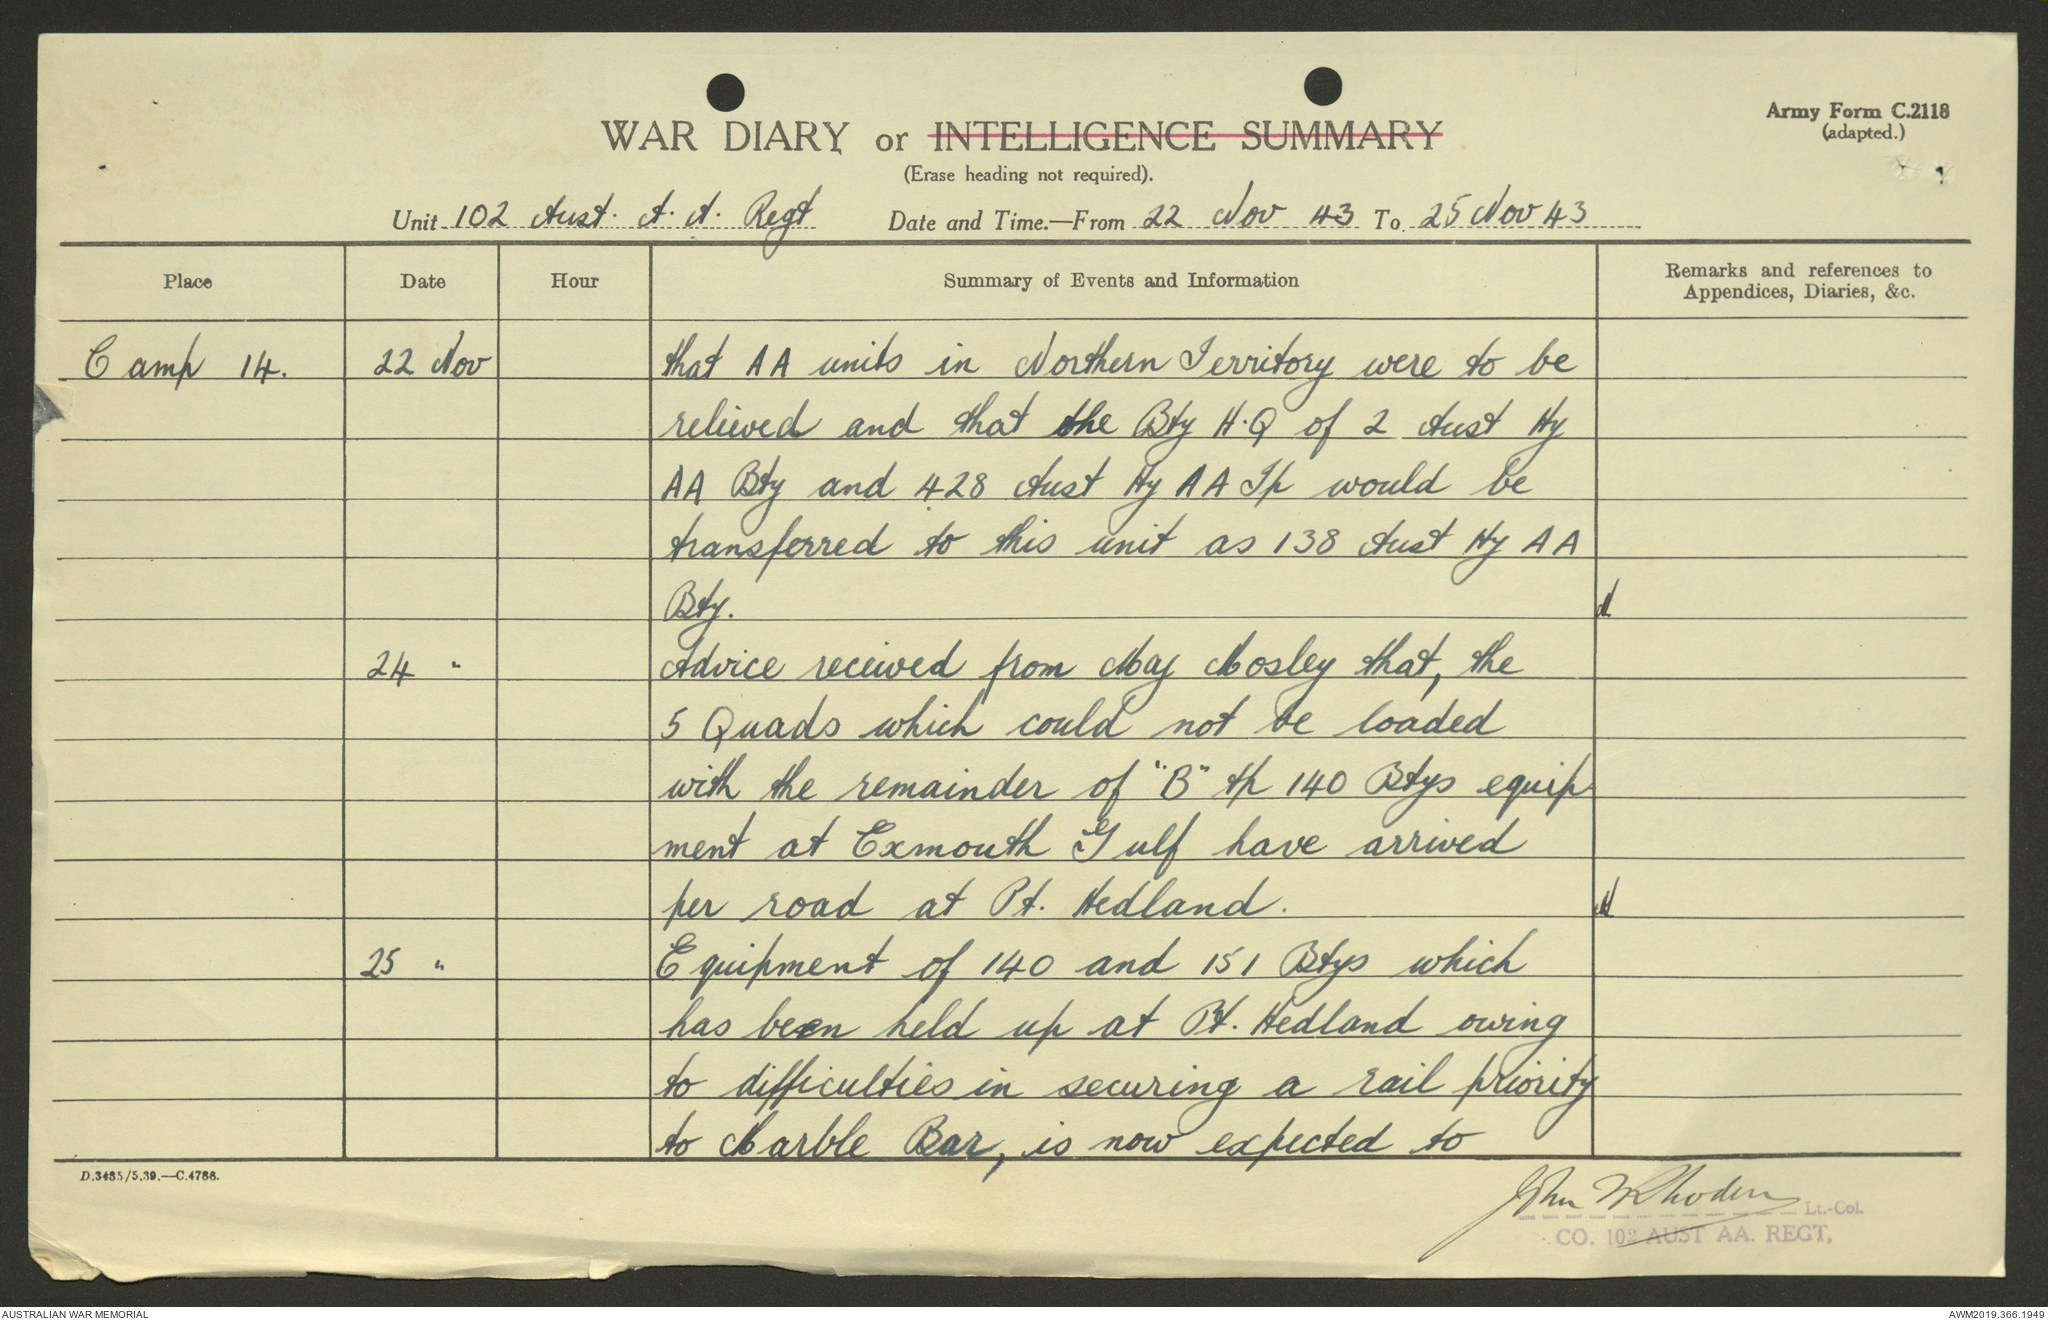 Army Form C.2118
(adapted.)
WAR DIARY or INTELLIGENCE SUMMARY
(Erase heading not required).
Unit 102 Aust. A. A. Regt Date and Time.—From 22 Nov 43 To 25 Nov 43
Place Date Hour Summary of Events and Information Remarks and references to
Appendices, Diaries, &c.
Camp 14. 22 Nov that AA units in Northern Territory were to be
relieved and that the Bty H.Q of 2 Aust Hy
AA Bty and 428 Aust Hy AA Tp would be
transferred to this unit as 138 Aust Hy AA
Bty.
24 " Advice received from Maj Mosley that, the
5 Quads which could not be loaded
with the remainder of "B" tp 140 Btys equip
ment at Exmouth Gulf have arrived
per road at Pt. Hedland.
25 " Equipment of 140 and 151 Btys which
has been held up at Pt. Hedland owing
to difficulties in securing a rail priority
to Marble Bar, is now expected to
D.3435/5.39.—C.4788.
John W Rhoden Lt.-Col.
CO. 102 AUST AA. REGT,
AUSTRALIAN WAR MEMORIAL
AWM2019.366.1949